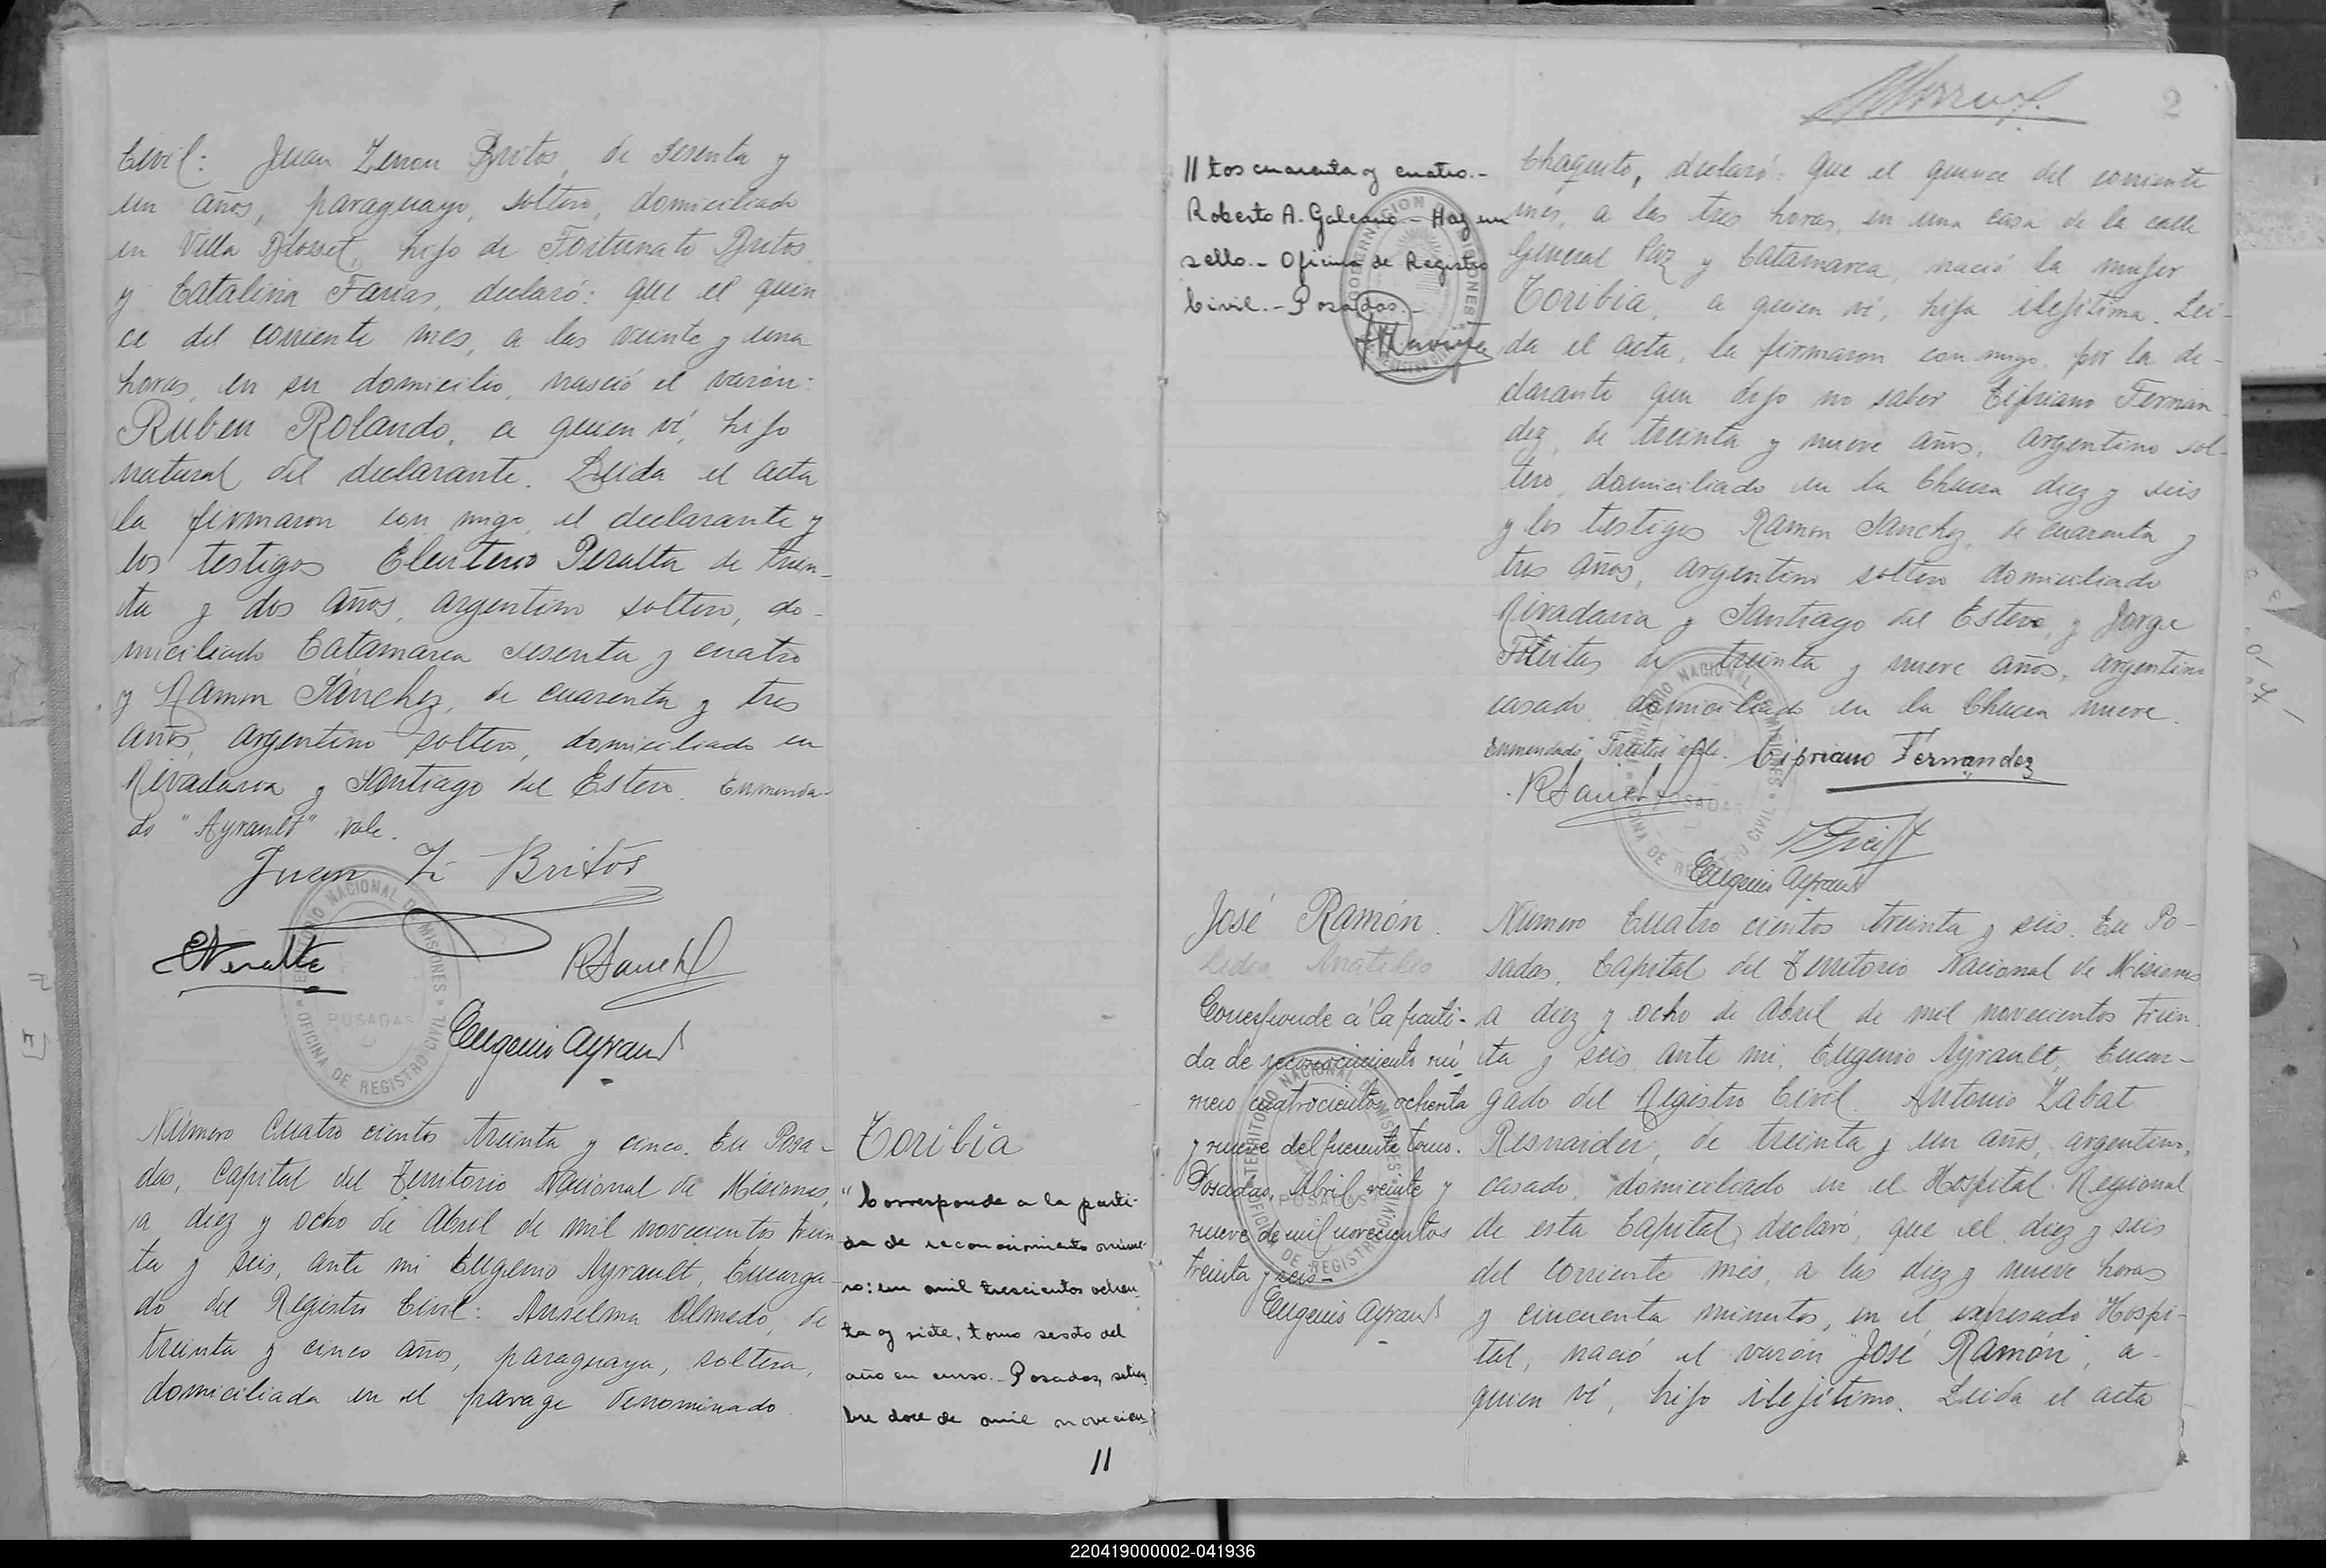 Civil: Juan Zenon Britos, de sesenta y
un años, paraguayo, soltero, domiciliado
en Villa Blosset, hijo de Fortunato Britos
y Catalina Farias, declaró: que el quin-
ce del corriente mes, a las veinte y una
horas, en su domicilio, nasció el varón:
Ruben Rolando, a quien ví, hijo
natural del declarante. Leida el acta
la firmaron con migo, el declarante y
los testigos Eleuterio Peralta de trein-
ta y dos años, argentino soltero, do-
miciliado Catamarca sesenta y cuatro
y Ramon Sánchez, de cuarenta y tres
años, argentino soltero, domiciliado en
Rivadavia y Santiago del Estero. Enmenda-
do "Ayrault" vale.
Juan Z. Britos
EPeralta RSanchez
Eugenio Ayrault
TERRITORIO NACIONAL DE MISIONES
POSADAS
OFICINA DE REGISTRO CIVIL
Número Cuatro cientos treinta y cinco. En Posa-
das, Capital del Territorio Nacional de Misiones,
a diez y ocho de Abril de mil novecientos trein
ta y seis, ante mi Eugenio Ayrault, Encarga-
do del Registro Civil: Anselma Olmedo, de
treinta y cinco años, paraguaya, soltera,
domiciliada en el parage denominado
Toribia
"Corresponde a la parti-
da de reconocimiento núme-
ro: un mil trescientos ochen-
ta y siete, tomo sesto del
año en curso.- Posadas, setiem
bre doce de mil novecien-
//
2
// tos cuarenta y cuatro.-
Roberto A. Galeano - Hay un
sello.- Oficina de Registro
Civil.- Posadas.-
GOBERNACION MISIONES
Chaquito, declaró: que el quince del corriente
mes, a las tres horas, en una casa de la calle
General Paz y Catamarca, nació la mujer
Toribia, a quien ví, hija ilejítima. Lei-
da el acta, la firmaron con migo, por la de-
clarante que dijo no saber Cipriano Fernan-
dez, de treinta y nueve años, argentino sol-
tero, domiciliado en la Chacra diez y seis
y los testigos Ramon Sanchez, de cuarenta y
tres años, argentino soltero domiciliado
Rivadavia y Santiago del Estero, y Jorge
Freites de treinta y nueve años, argentino
casado domiciliado en la Chacra nueve.
Enmendado "Freites" vale. Cipriano Fernandez
RSanchez
Eugenio Ayrault
TERRITORIO NACIONAL DE MISIONES
POSADAS
OFICINA DE REGISTRO CIVIL
José Ramón.
Corresponde á la parti-
da de reconocimiento nú-
mero cuatrocientos ochenta
y nueve del presente tomo.
Posadas, Abril veinte y
nueve de mil novecientos
treinta y seis-
Eugenio Ayrault
TERRITORIO NACIONAL DE MISIONES
POSADAS
OFICINA DE REGISTRO CIVIL
Número Cuatro cientos treinta y seis. En Po-
sadas, Capital del Territorio Nacional de Misiones
a diez y ocho de Abril de mil novecientos trein
ta y seis, ante mi, Eugenio Ayrault, Encar-
gado del Registro Civil. Antonio Zabat
Resnaider, de treinta y un años, argentino,
casado, domiciliado en el Hospital Regional
de esta Capital, declaró, que el diez y seis
del corriente mes, a las diez y nueve horas
y cincuenta minutos, en el expresado Hospi-
tal, nació el varón "José Ramón", a-
quien ví, hijo ilejítimo. Leida el acta
220419000002-041936